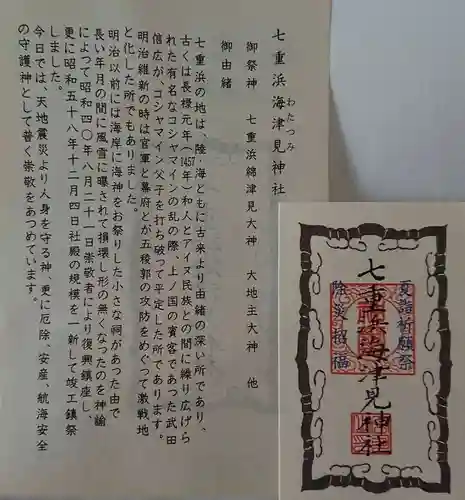 七重浜海津見神社
わたつみ
御祭神　七重浜綿津見大神　大地主大神　他
御由緒
七重浜の地は、陸・海ともに古来より由緒の深い所であり、
古くは長禄元年(1457年)和人とアイヌ民族との間に繰り広げら
れた有名なコシャマインの乱の際、上ノ国の賓客であった武田
信広が、コシャマイン父子を打ち破って平定した所であります。
明治維新の時は官軍と幕府とが五稜郭の攻防をめぐって激戦地
と化した所でもありました。
明治以前には海岸に海神をお祭りした小さな祠があった由で
長い年月の間に風雪に曝されて損壊し形の無くなったのを神諭
によって昭和四〇年八月二十一日崇敬者により復興鎮座し、
更に昭和五十八年十二月四日社殿の規模を一新して竣工鎮祭
しました。
今日では、天地震災より人身を守る神、更に厄除、安産、航海安全
の守護神として普く崇敬をあつめています。
夏詣祈願祭
七重浜海津見神社
除災招福